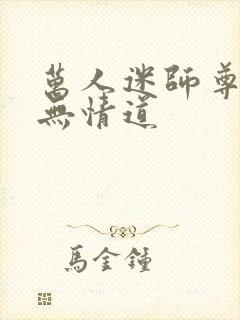 萬人迷師尊
無情道
馬金鐘